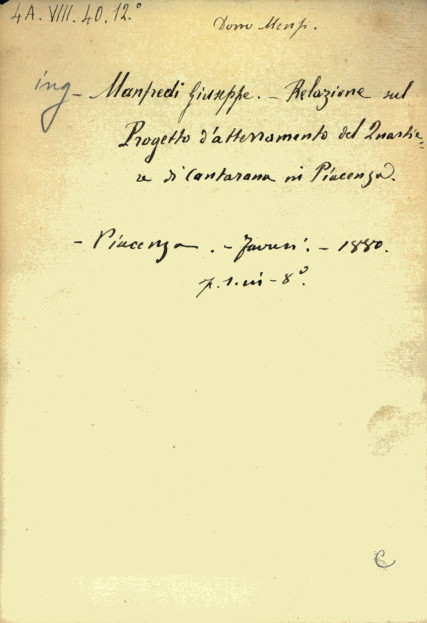 4A. VIII. 40. 12.°
Dono Mensi.
ing - Manfredi Giuseppe. - Relazione sul
Progetto d'atterramento del Quartie=
re di Cantarana in Piacenza.
- Piacenza. - - 1880.
in - 8°.
C